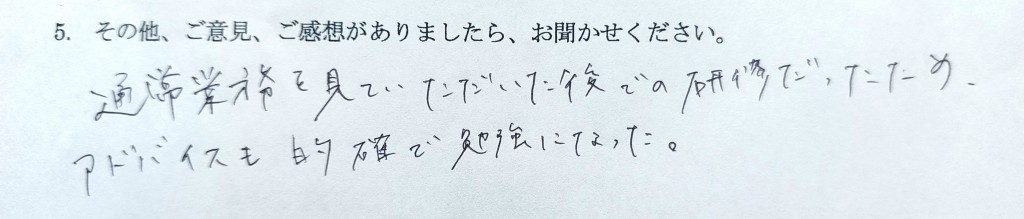 5. その他、ご意見、ご感想がありましたら、お聞かせください。
通常業務を見ていただいた後での研修だったため、
アドバイスも的確で勉強になった。